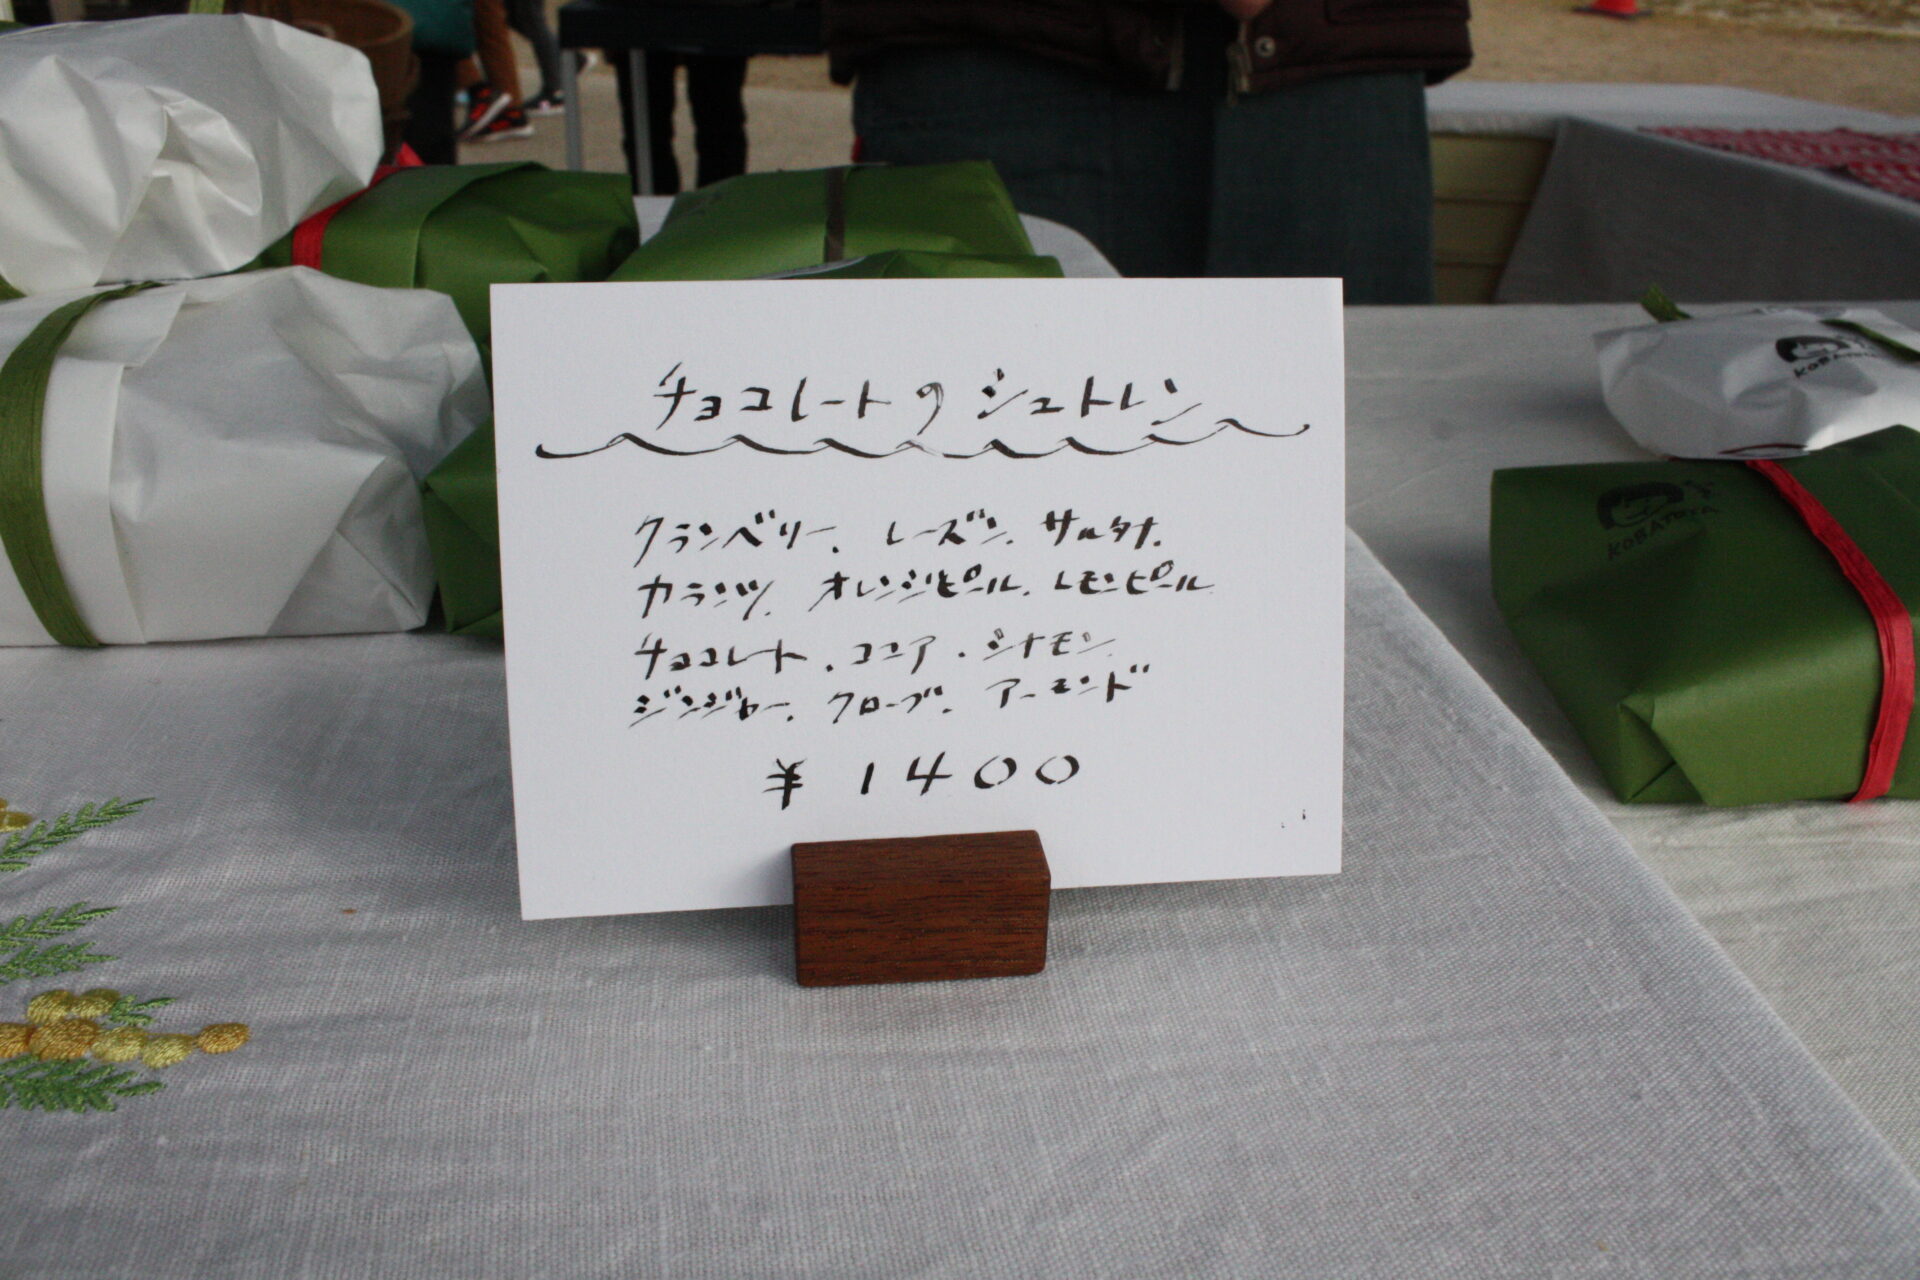 チョコレートのシュトレン
クランベリー、レーズン、サルタナ、
カランツ、オレンジピール、レモンピール
チョコレート、ココア、シナモン、
ジンジャー、クローブ、アーモンド
¥1400
KOBATOYA
KOBATOYA